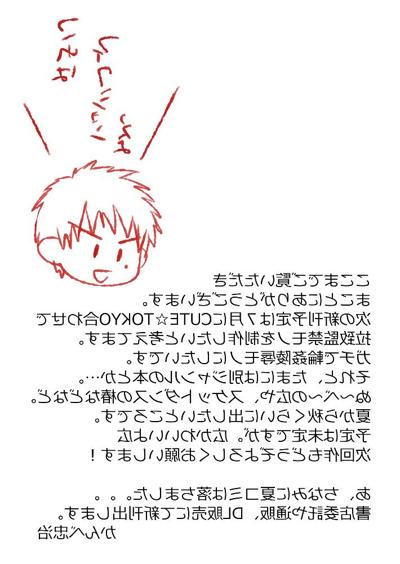 ここまでご覧いただき
まことにありがとうございます。
次の新刊予定は7月にCUTE☆TOKYO合わせで
拉致監禁モノを制作したいと考えてます。
ガチで輪姦陵辱モノにしたいです。
それと、たまには別ジャンルの本とか…。
ぬ~べ~の広や、スケットダンスの椿などなど。
夏から秋くらいに出したいところです。
予定は未定ですが。広かわいいよ広
次回作もどうぞよろしくお願いします！
あ、ちなみに夏コミは落ちました。。。
書店委託や通販、DL販売にて新刊出します。
かんべ忠治